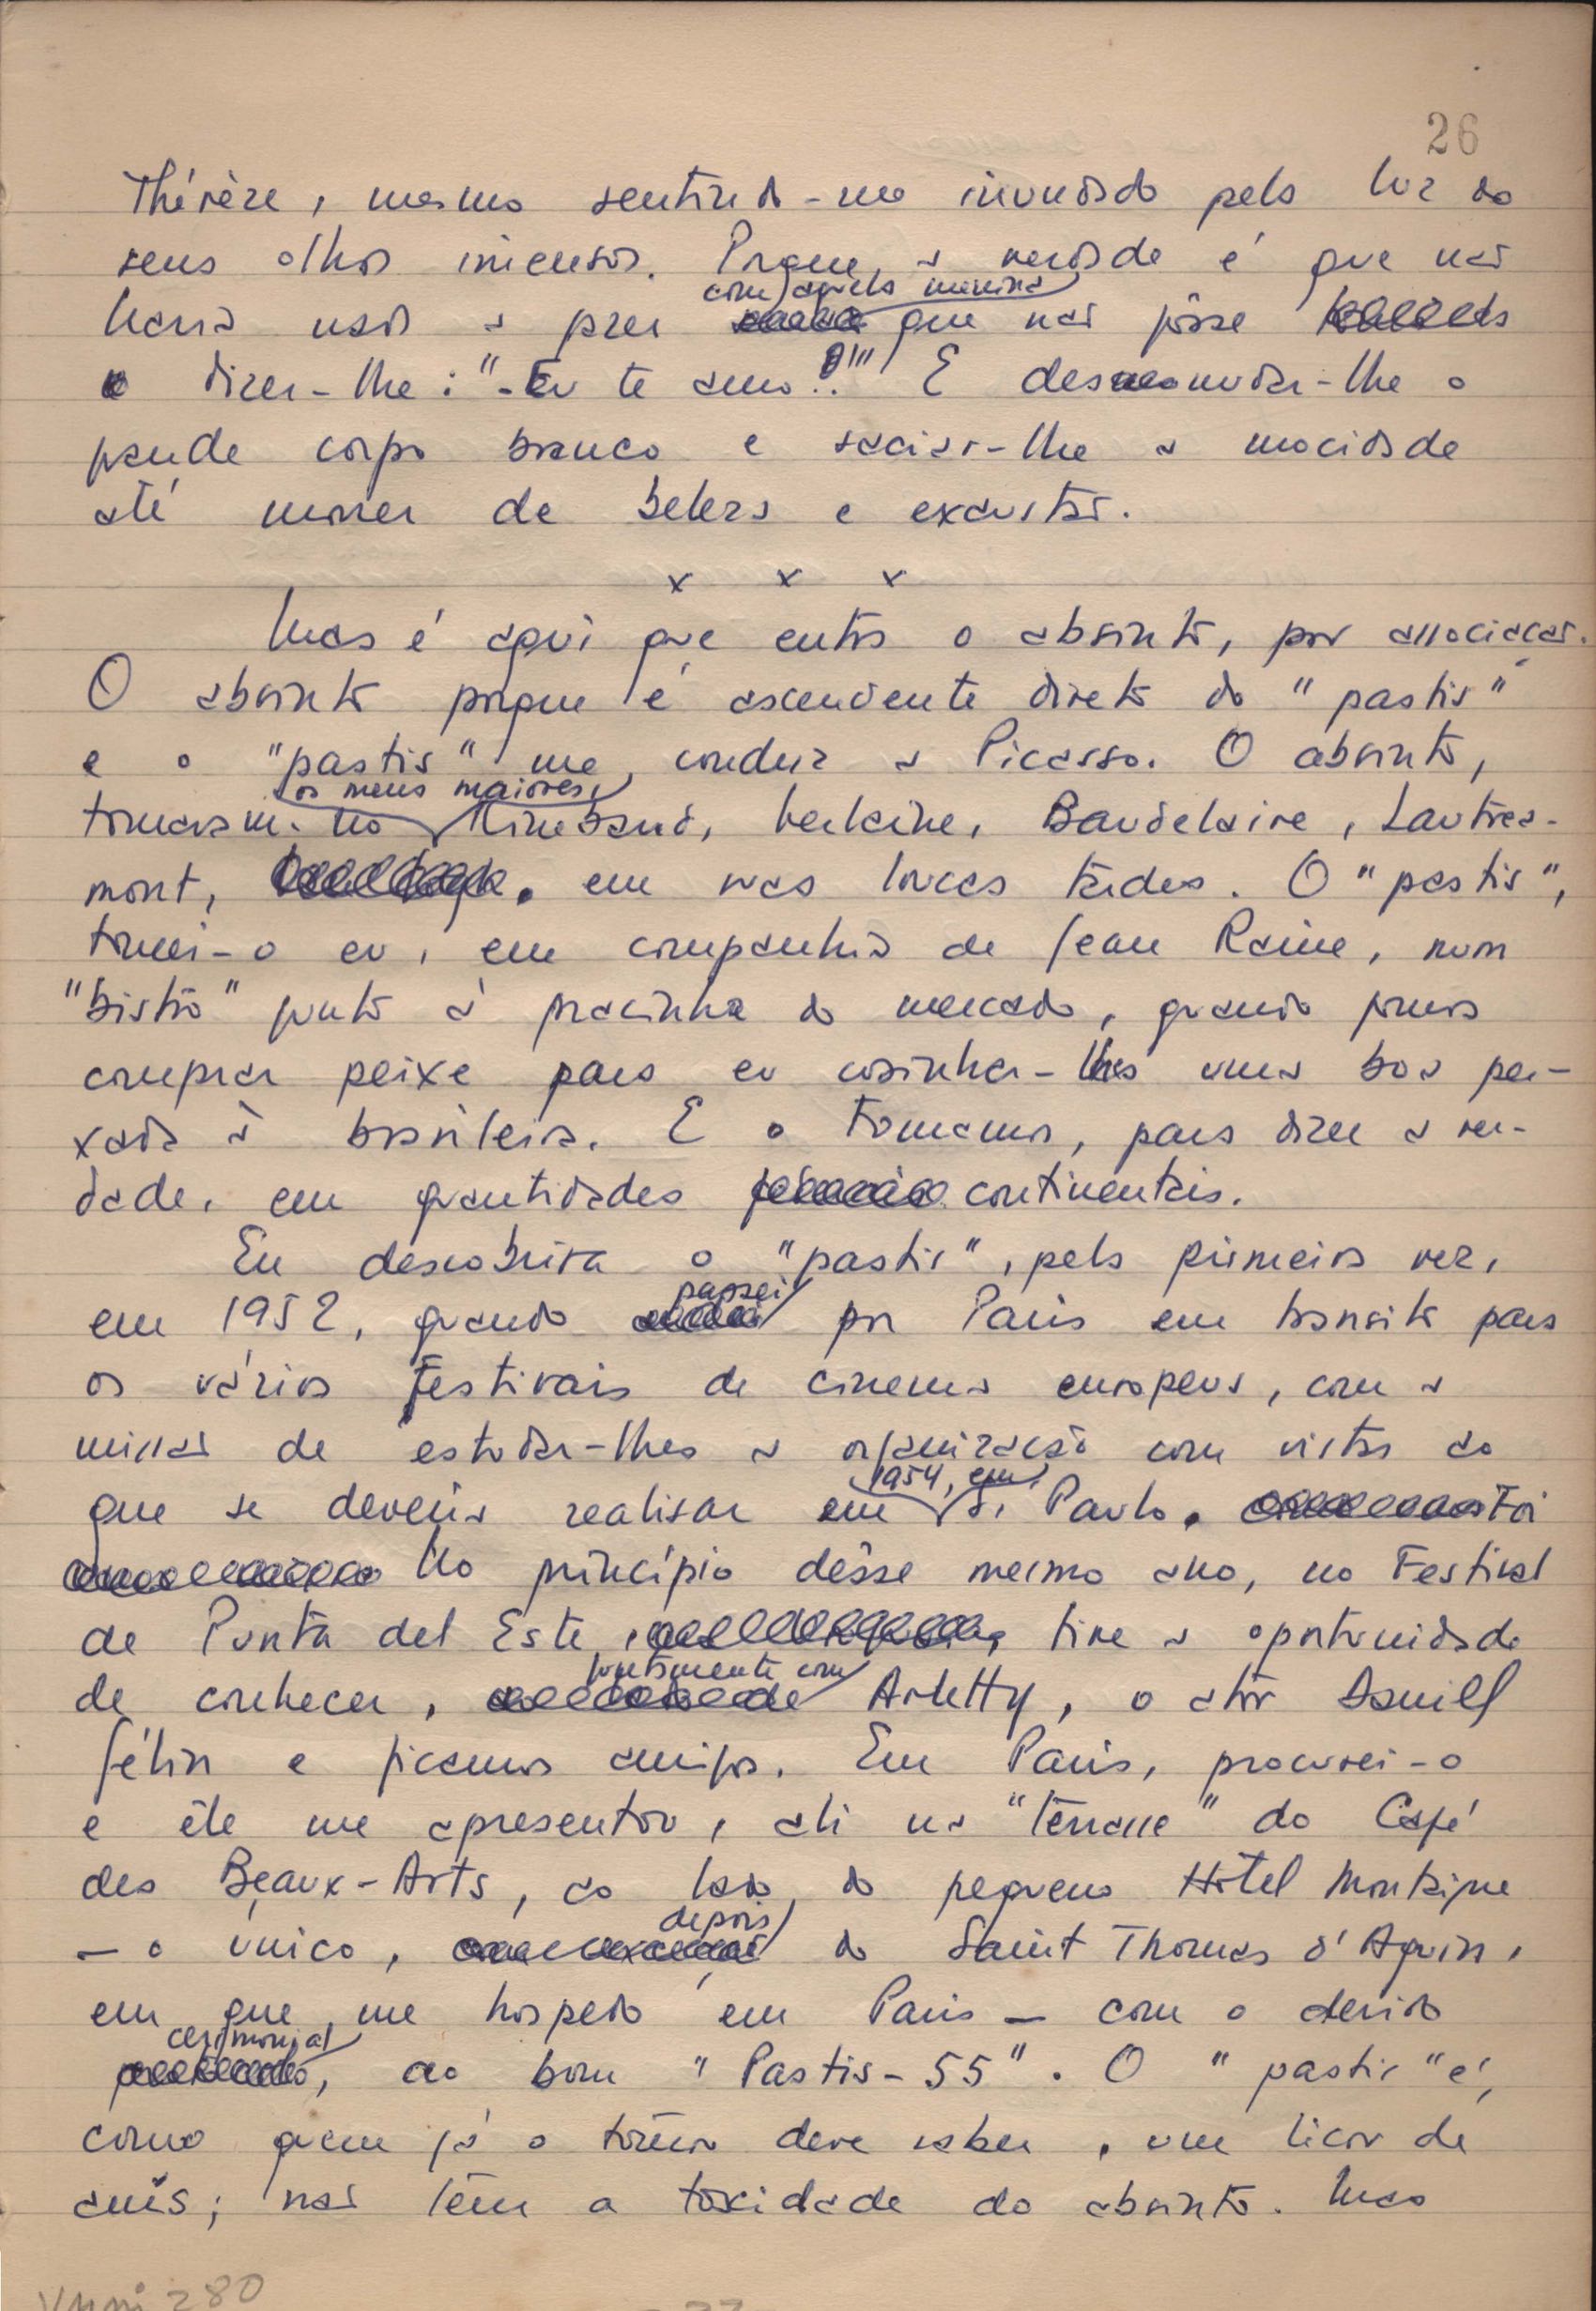 26
Thérèze, mesmo sentindo-me inundado pela luz do
seus olhos imensos. Porque, a verdade é que não
com aquela menina
havia nada a fazer que não fôsse
dizer-lhe: "-Eu te amo!..." E desnudar-lhe o
grande corpo branco e saciar-lhe a mocidade
até morrer de beleza e exaustão.
x x x
Mas é aqui que entra o absinto, por associação.
O absinto porque é ascendente direto do "pastis"
e o "pastis" me conduz a Picasso. O absinto,
os meus maiores,
tomaram-no Rimbaud, Verlaine, Baudelaire, Lautréa-
mont, em suas loucas tardes. O "pastis",
tomei-o eu, em companhia de Jean Raine, num
"bistrô" junto à pracinha do mercado, quando fomos
comprar peixe para eu cosinhar-lhes uma boa pei-
xada à brasileira. E o tomamos, para dizer a ver-
dade, em quantidades continentais.
Eu descobrira o "pastis", pela primeira vez,
passei
em 1952, quando por Paris em transito para
os vários festivais de cinema europeus, com a
missão de estudar-lhes a organização com vistas ao
1954, em
que se deveria realisar em S. Paulo. Foi
No princípio dêsse mesmo ano, no Festival
de Punta del Este, tive a oportunidade
juntamente com
de conhecer, Arletty, o ator Daniel
Gélin e ficamos amigos. Em Paris, procurei-o
e êle me apresentou, ali na "terrasse" do Café
des Beaux-Arts, ao lado do pequeno Hôtel Montaigne
depois
- o único, do Saint Thomas d'Aquin,
em que me hospedo em Paris - com o devido
cerimonial
, ao bom "Pastis-55". O "pastis" é,
como quem já o tomou deve saber, um licor de
anis; não têm a toxidade do absinto. Mas
280